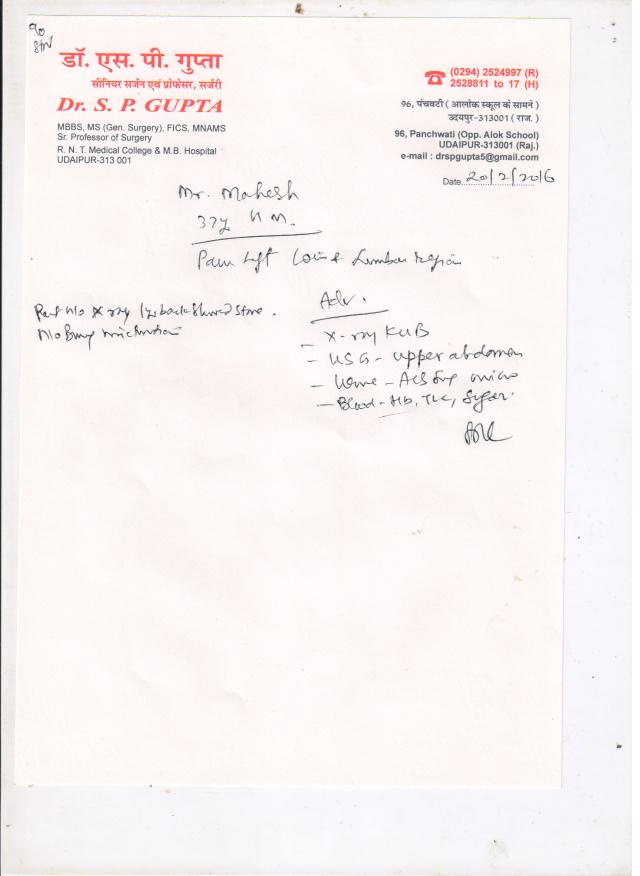 डॉ. एस. पी. गुप्ता
सीनियर सर्जन एवं प्रोफेसर, सर्जरी
Dr. S. P. GUPTA
MBBS, MS (Gen. Surgery), FICS, MNAMS
Sr. Professor of Surgery
R. N. T. Medical College & M.B. Hospital
UDAIPUR-313 001
(0294) 2524997 (R)
2528811 to 17 (H)
96, पंचवटी ( आलोक स्कूल के सामने )
उदयपुर-313001 ( राज. )
96, Panchwati (Opp. Alok School)
UDAIPUR-313001 (Raj.)
e-mail : drspgupta5@gmail.com
Date 20/2/2016
Mr. Mahesh
37y M.
Pain left loin & Lumbar region
Past H/o X ray 1yr back showed stone.
H/o Burning micturition
Adv.
- X-ray KUB
- USG - upper abdomen
- Urine - micro
- Blood - Hb, TLC, Sugar.